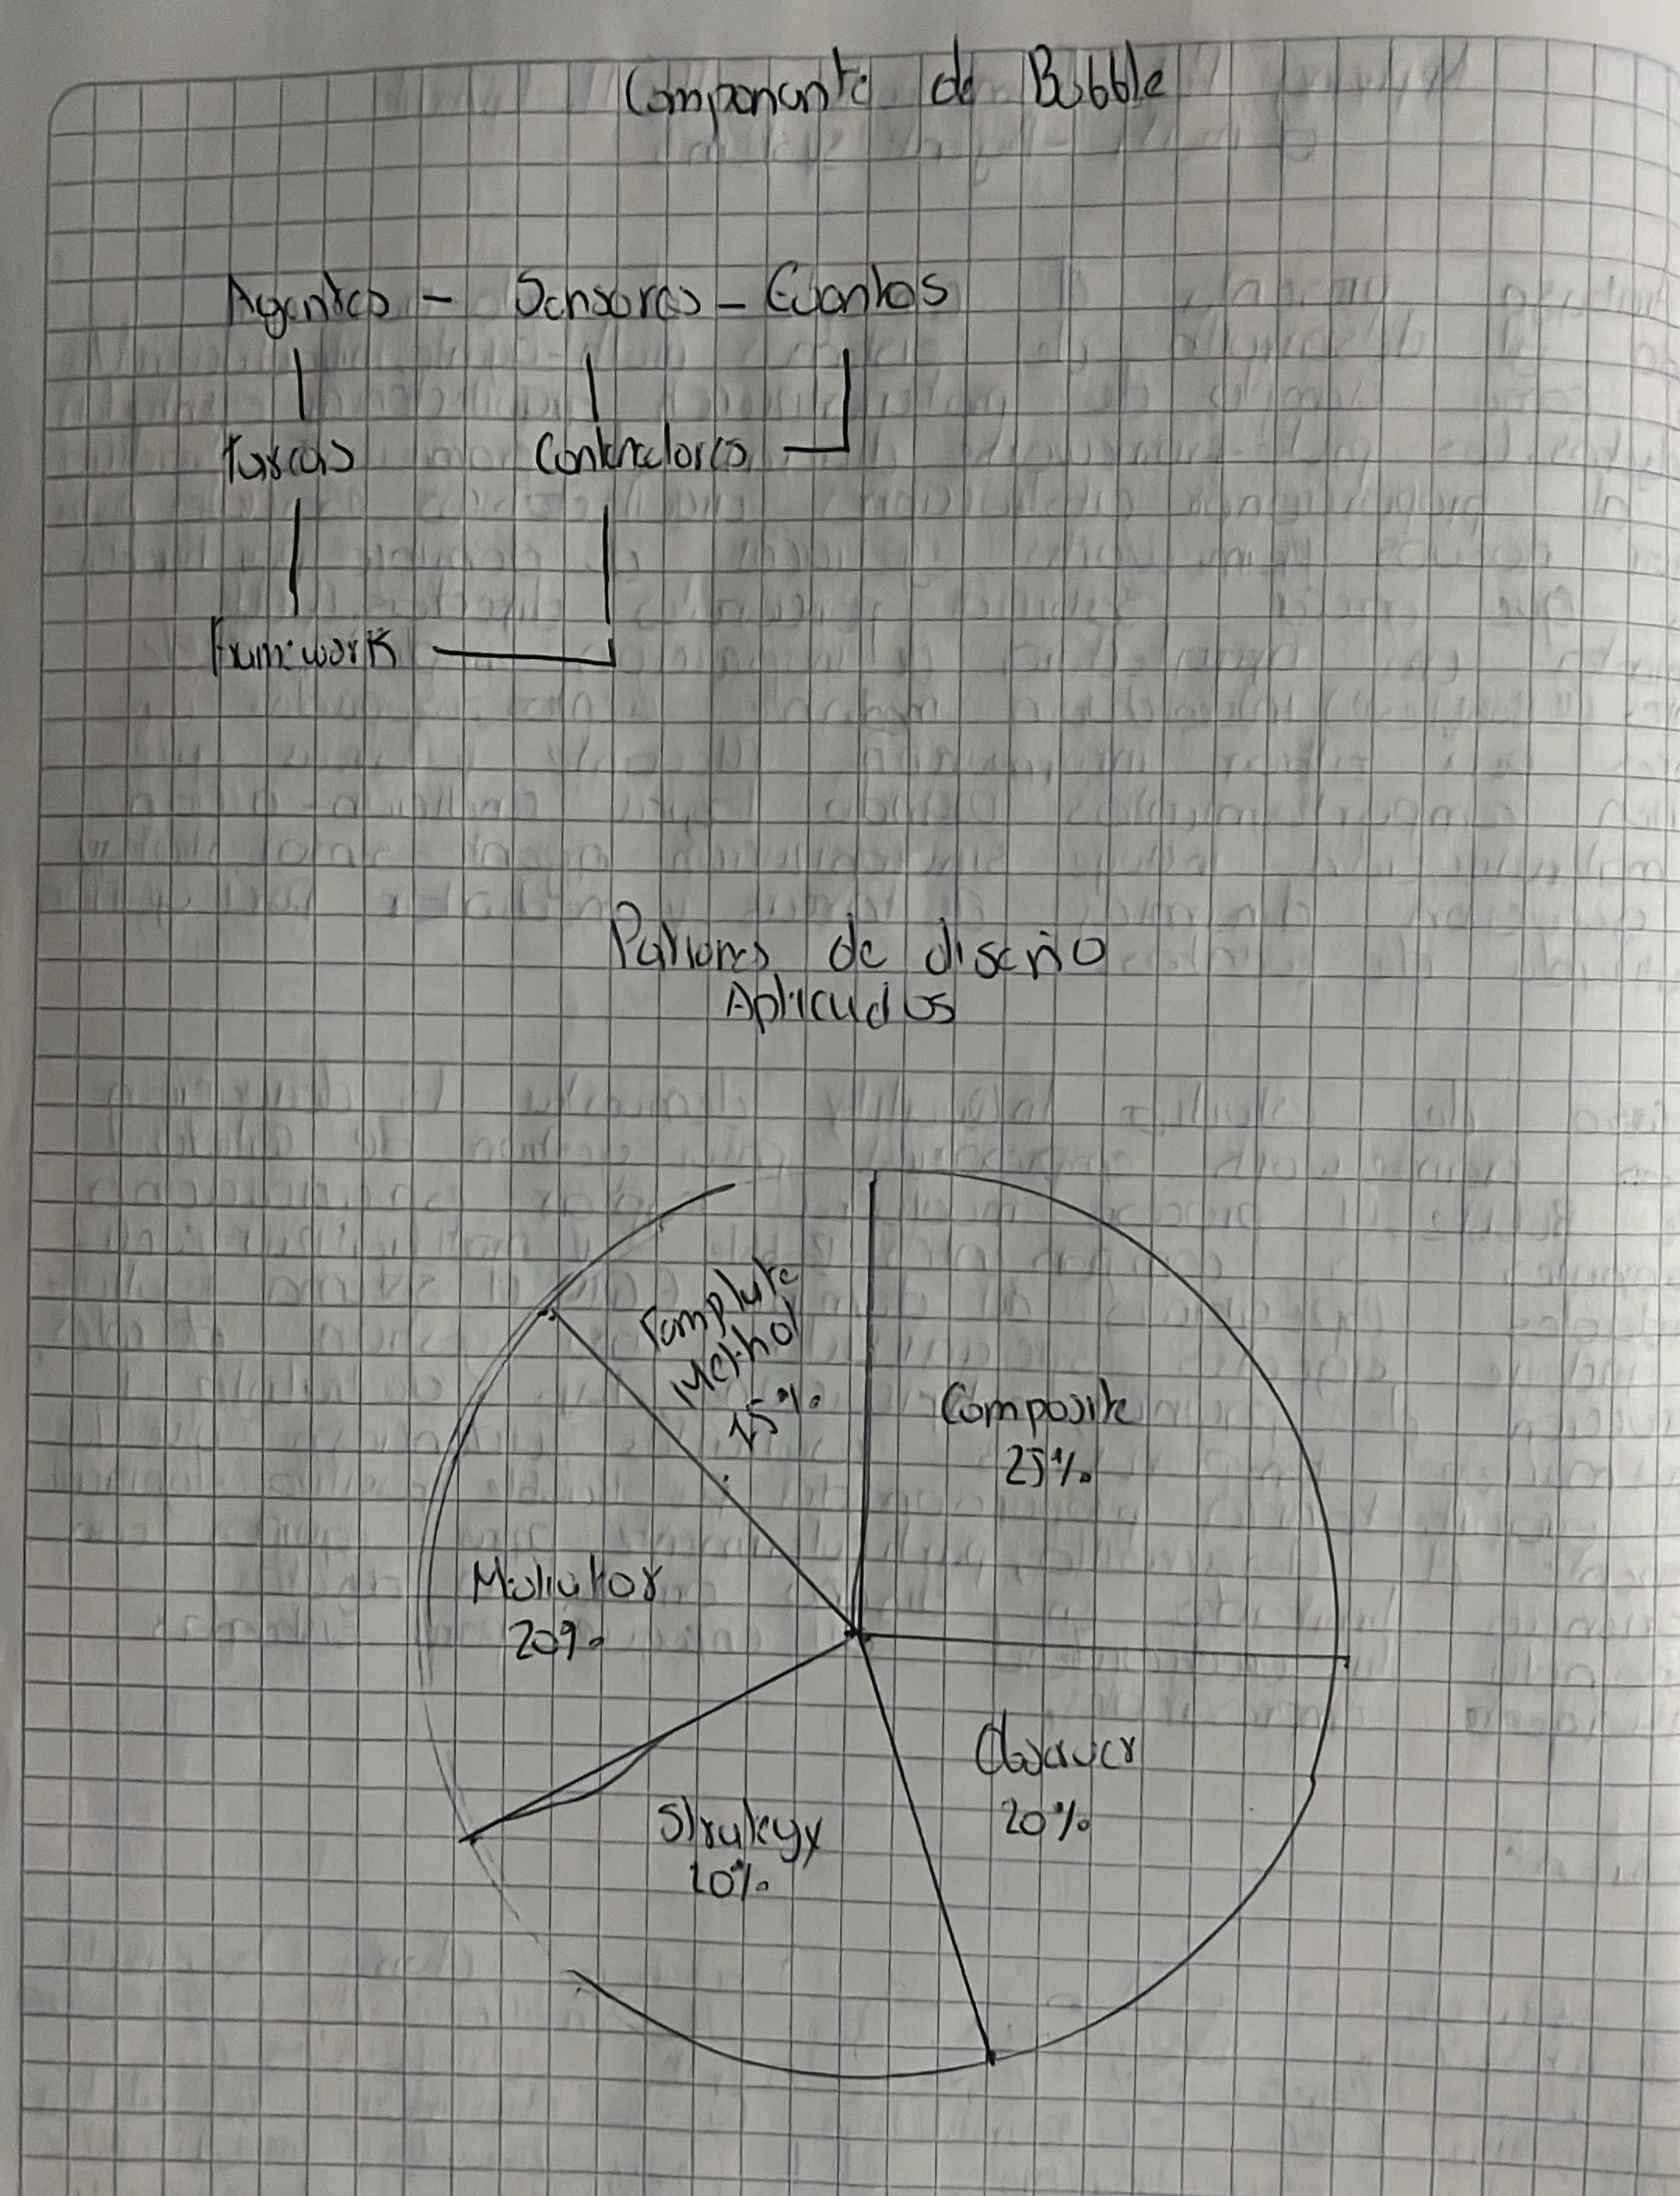 Componente de Bubble
Agentes - Sensores - Eventos
Tareas Controladores
Framework
Patrones de diseño
Aplicados
Template
Method
15%
Composite
25%
Mediator
20%
Observer
20%
Strategy
20%